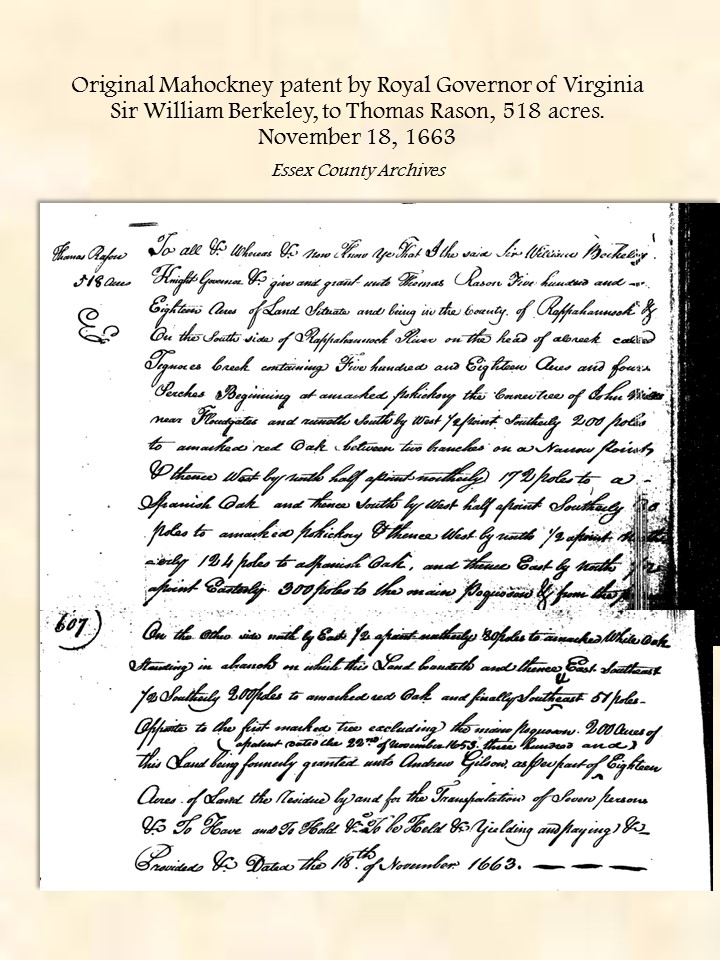 Original Mahockney patent by Royal Governor of Virginia
Sir William Berkeley, to Thomas Rason, 518 acres.
November 18, 1663
Essex County Archives
Thomas Rason
518 Acres
To all &c Whereas &c now Know Ye That I the said Sir William Berkeley
Knight Governor &c give and grant unto Thomas Rason Five hundred and
Eighteen Acres of Land Situate and being in the County of Rappahannock &
On the South side of Rappahannock River on the head of a Creek called
Tignores Creek containing Five hundred and Eighteen Acres and four
Perches Beginning at a marked pohickory the Corner tree of John
near Floodgates and runneth South by West 1/2 point Southerly 200 poles
to a marked red Oak between two branches on a Narrow Point
& thence West by north half a point northerly 172 poles to a
Spanish Oak and thence South by West half a point Southerly
poles to a marked pohickory & thence West by north 1/2 a point
erly 124 poles to a Spanish Oak, and thence East by north 1/2
a point Easterly 300 poles to the main Poquoson & from the
607)
On the Other side north by East 1/2 a point northerly 80 poles to a marked White Oak
Standing in a branch on which the Land boundeth and thence East Southeast
1/2 Southerly 200 poles to a marked red Oak and finally Southeast 51 poles
Opposite to the first marked tree excluding the main poquoson. 200 Acres of
a patent dated the 22nd of November 1653. three hundred and
this Land being formerly granted unto Andrew Gilson, as per part of Eighteen
Acres of Land the Residue by and for the Transportation of Seven persons
&c To Have and To Hold &c To be Held &c Yielding and paying &c
Provided &c Dated the 18th of November 1663.